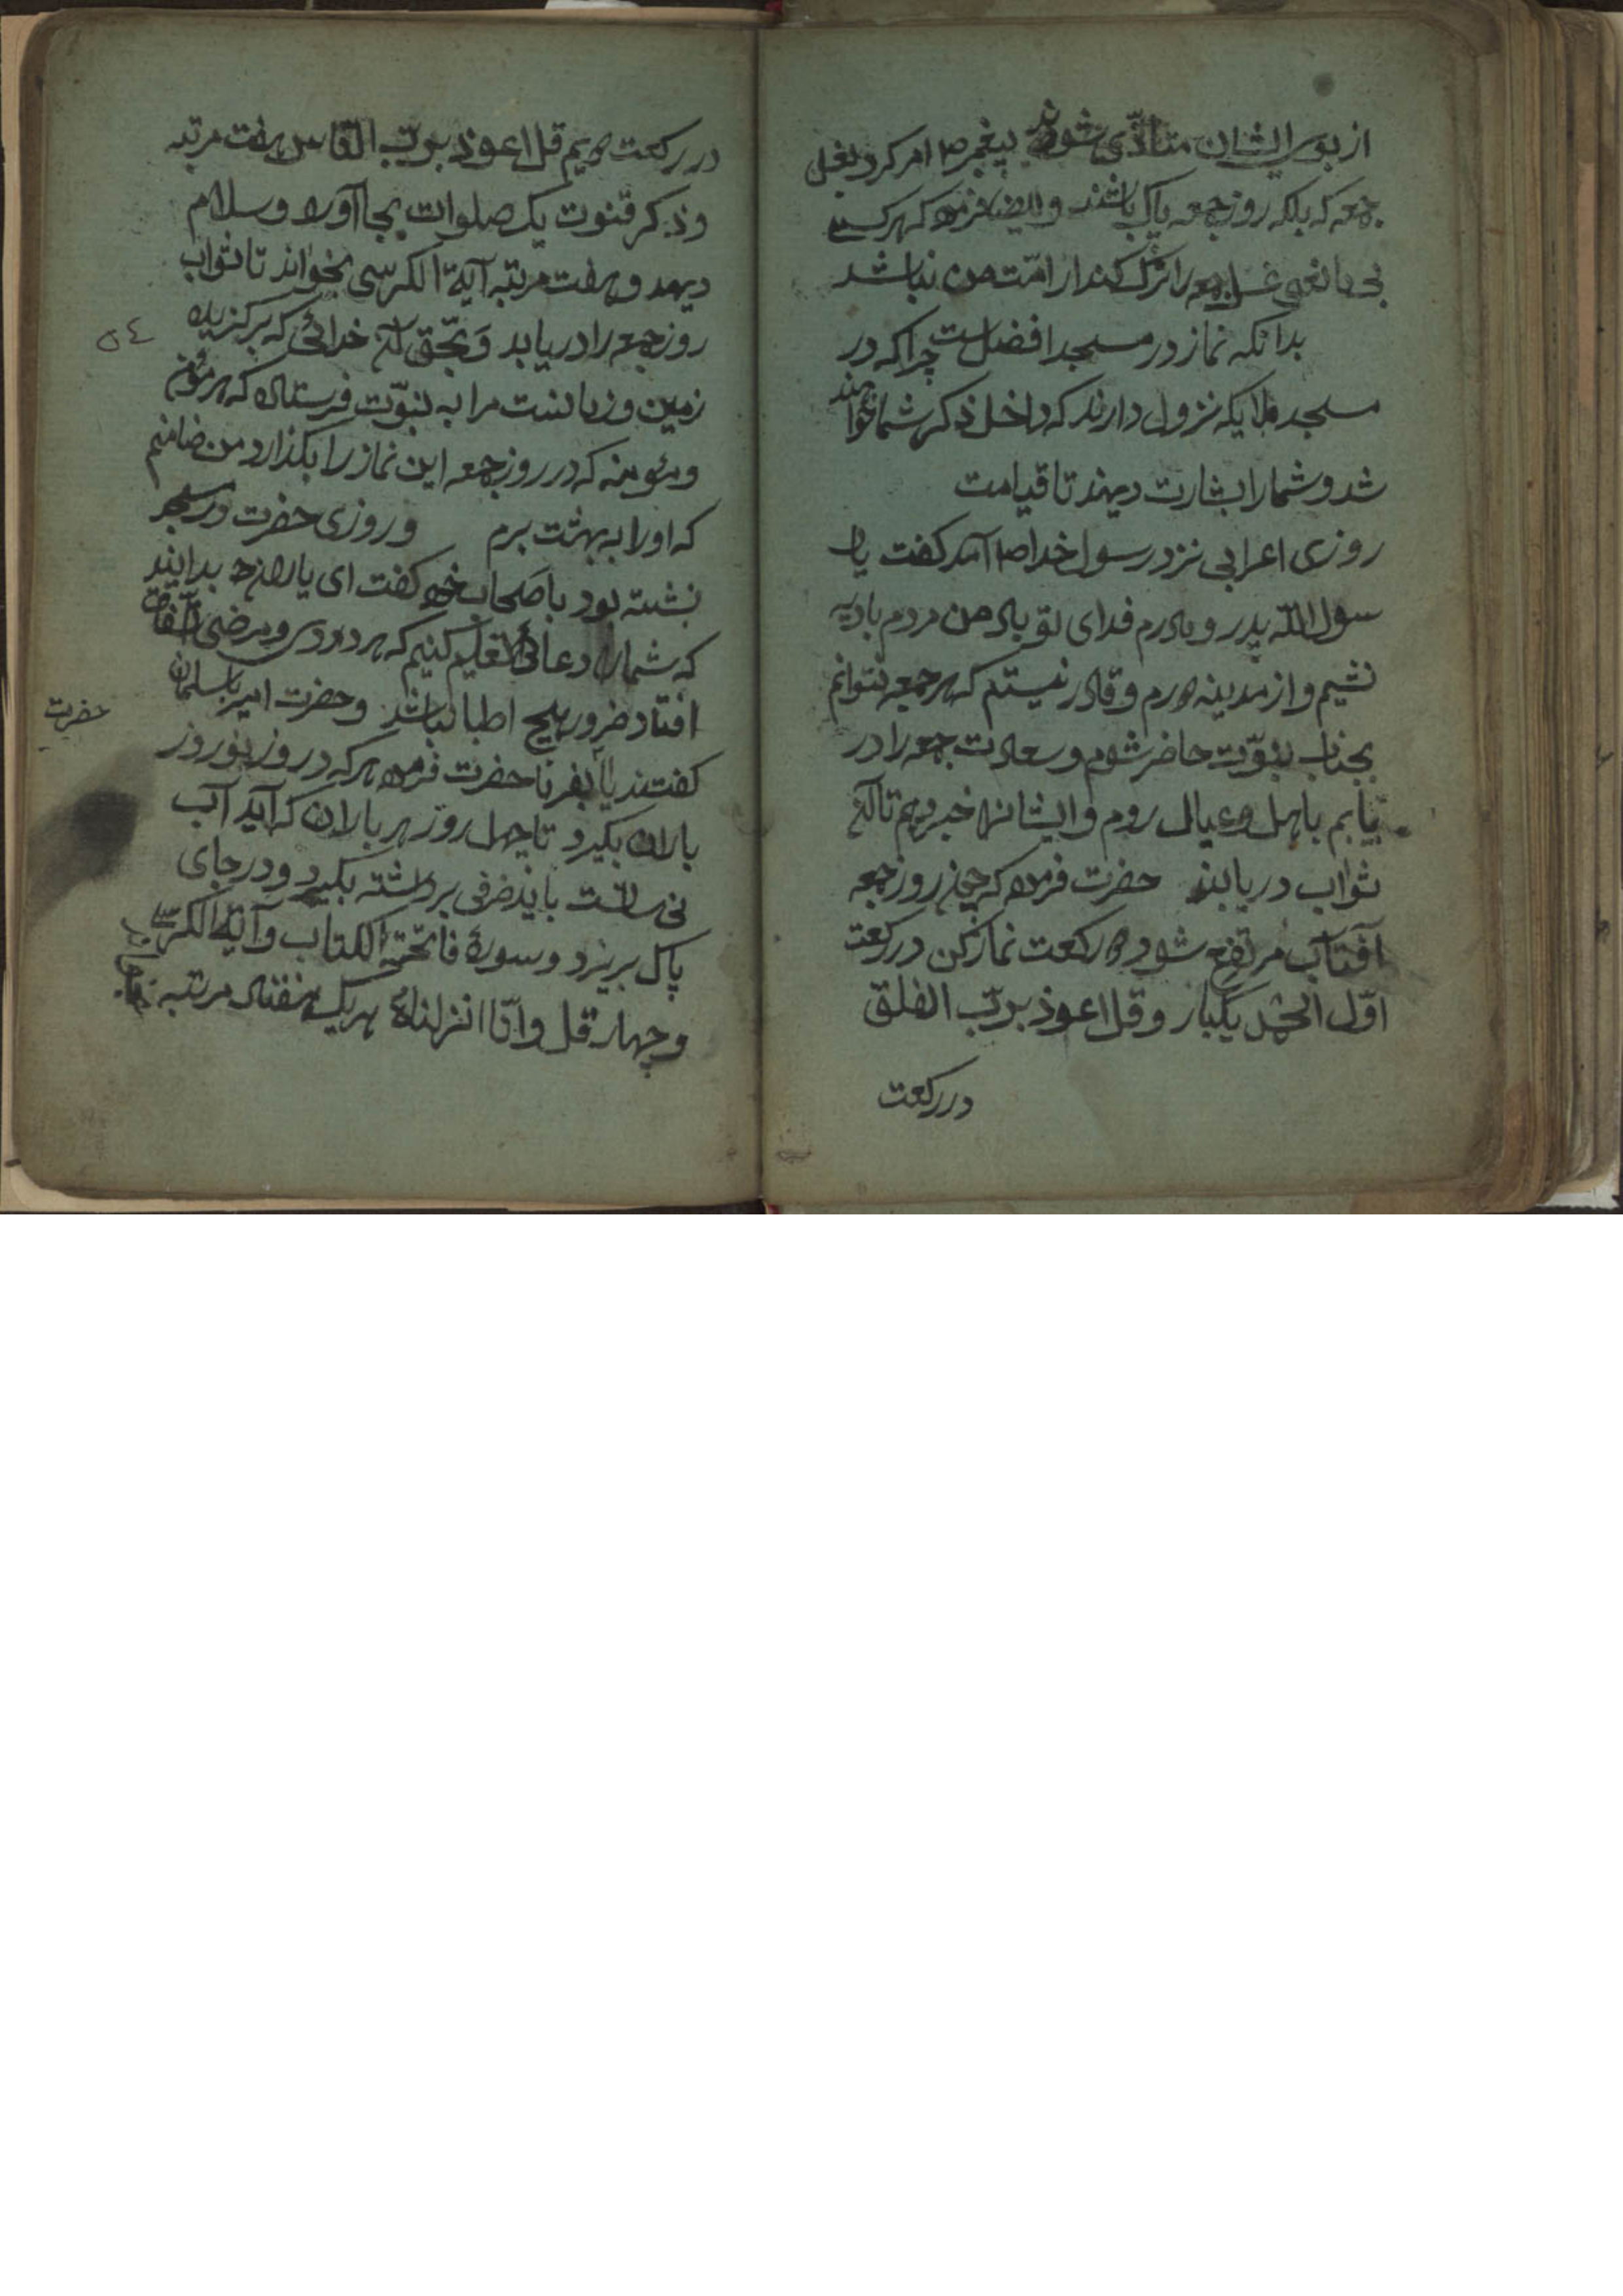 از بوی ایشان متأذّی شوند پیغمبر ص امر کرد بغسل
جمعه که بلکه روز جمعه پاک باشند و ایضا فرمود که هر کسی
بی مانعی غسل جمعه را ترک کند از امّت من نباشد
بدانکه نماز در مسجد افضل است چرا که در
مسجد ملایکه نزول دارند که داخل ذکر شما خواهند
شد و شما را بشارت دهند تا قیامت
روزی اعرابی نزد رسول خدا ص آمد کفت یا ر
سول اللّه پدر و مادرم فدای تو باد من مردم بادیه
نشیم و از مدینه دورم و قادر نیستم که هر جمعه بتوانم
بجناب نبوّت حاضر شوم و سعادت جمعه را در
یابم باهل و عیال روم و ایشانرا خبر دهم تا آنکه
ثواب دریابند حضرت فرمود که چون روز جمعه
آفتاب مرتفع شود دو رکعت نماز کن در رکعت
اوّل الحمد یکبار و قل اعوذ بربّ الفلق
در رکعت
در رکعت دویم قل اعوذ بربّ النّاس هفت مرتبه
و ذکر قنوت یک صلوات بجا آورد و سلام
دهد و هفت مرتبه آیة الکرسی بخواند تا ثواب
روز جمعه را دریابد و بحّق آن خدائی که برکزیده
٥٤
زمین و زمانست مرا به نبوّت فرستاده که هر مؤمن
و مؤمنه که در روز جمعه این نماز را بکذارد من ضامنم
که او را به بهشت برم و روزی حضرت در مسجد
نشسته بود با صحاب خود کفت ای یاران بدانید
که شما را دعائی تعلیم کنیم که هر دردی و مرضی اتّفاق
افتاد ضرور هیچ اطبا نباشد و حضرت امیر با سلمان
حضرت
کفتند یا بفرما حضرت فرمود هر که در روز نوروز
باران بکیرد تا چهل روز هر باران که آید آب
نی سانست باید ضرفی برداشته بکیرد و در جای
پاک بریزد و سوره فاتحة الکتاب و آیة الکرسی
و چهار قل و انّا انزلناه هر یک هفتاد مرتبه